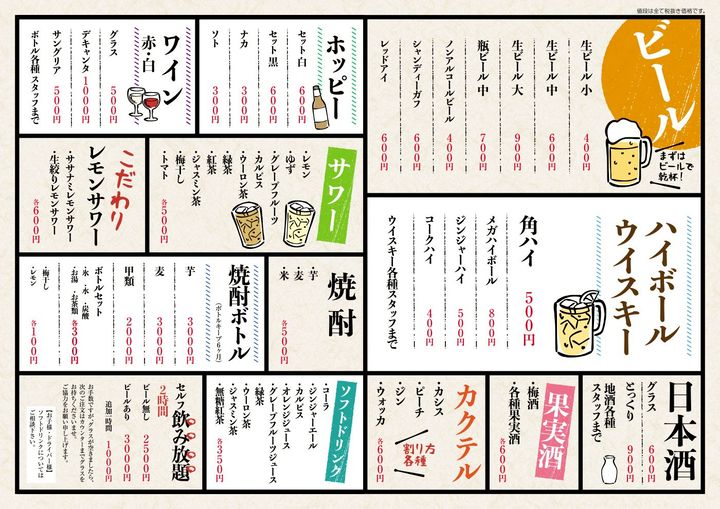 値段は全て税抜き価格です。
ビール
まずは
ビールで
乾杯!
生ビール 小 400円
生ビール 中 600円
生ビール 大 900円
瓶ビール 中 700円
ノンアルコールビール 400円
シャンディーガフ 600円
レッドアイ 600円
ホッピー
セット 白 600円
セット 黒 600円
ナカ 300円
ソト 300円
ワイン
赤・白
グラス 500円
デキャンタ 1000円
サングリア 500円
ボトル各種 スタッフまで
サワー
・レモン
・ゆず
・グレープフルーツ
・カルピス
・ウーロン茶
・緑茶
・紅茶
・ジャスミン茶
・梅干し
・トマト
各500円
こだわり
レモンサワー
・ササナミレモンサワー
・生絞りレモンサワー
各600円
ハイボール
ウイスキー
角ハイ 500円
メガハイボール 800円
ジンジャーハイ 500円
コークハイ 400円
ウイスキー各種スタッフまで
焼酎
・芋
・麦
・米
各500円
焼酎ボトル
(ボトルキープ6ヶ月)
芋 3000円
麦 3000円
甲類 2000円
ボトルセット
・氷 ・水 ・炭酸
・お湯 ・お茶類 各300円
・梅干し
・レモン 各100円
日本酒
グラス 600円
とっくり 900円
地酒各種
スタッフまで
果実酒
・梅酒
・各種果実酒
各600円
カクテル
割り方
各種
・カシス
・ピーチ
・ジン
・ウォッカ
各600円
ソフトドリンク
・コーラ
・ジンジャーエール
・カルピス
・オレンジジュース
・グレープフルーツジュース
・緑茶
・ウーロン茶
・ジャスミン茶
・無糖紅茶
各350円
セルフ飲み放題
2時間
ビール無し 2500円
ビールあり 3000円
追加一時間 1000円
お手数ですが、グラスが空きましたら、
次のご注文はカウンターまでグラスを
お持ちくださいませ。
ご協力をお願い申し上げます。
【お子様・ドライバー様】
ソフトドリンクについては
ご相談下さい。